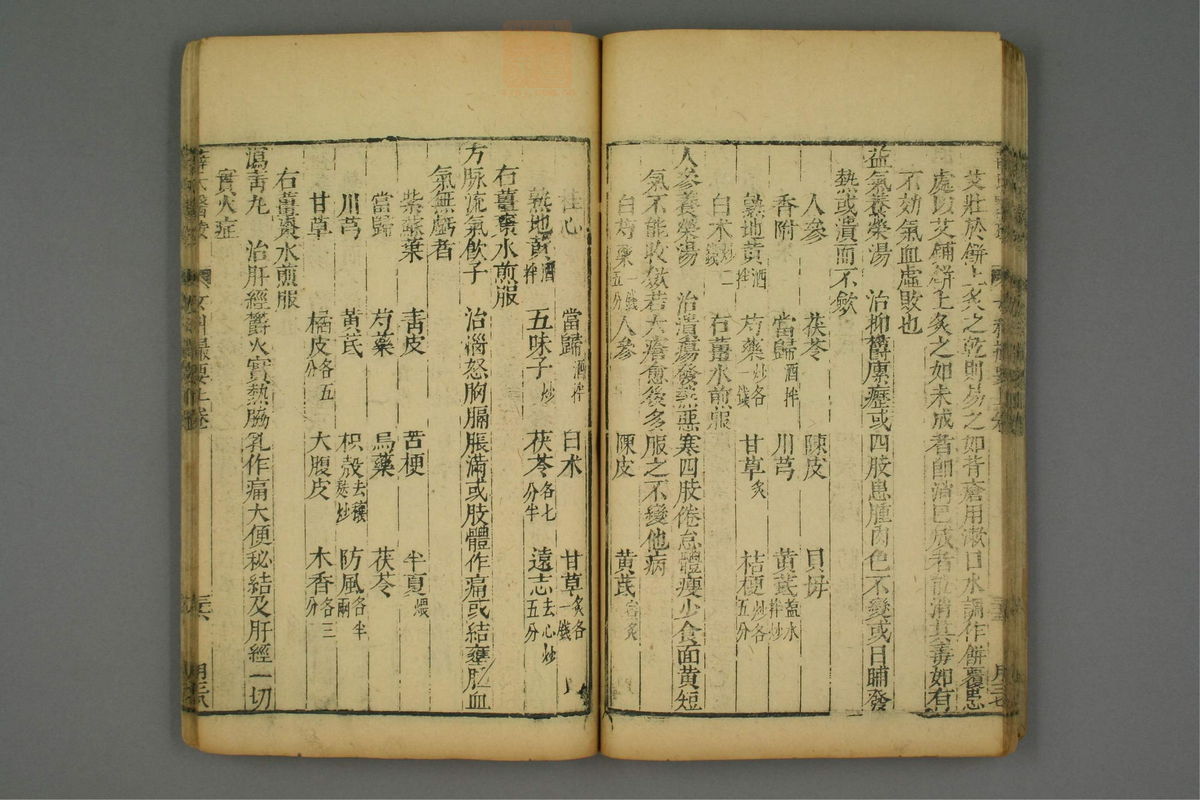 艾壯於餅上炙之乾則易之如背瘡用漱口水調作餅覆患
處以艾鋪餅上炙之如未成者即消已成者亦消其毒如有
不効氣血虛敗也
益氣養榮湯　治抑鬱瘰癧或四肢患腫肉色不變或日晡發
熱或潰而不歛
人參　茯苓　陳皮　貝母
香附　當歸酒拌　川芎　黃芪鹽水拌炒
熟地黃酒拌　芍藥炒各一錢　甘草炙　桔梗炒各五分
白术炒二錢　右薑水煎服
人參養榮湯　治潰瘍發熱惡寒四肢倦怠體瘦少食面黃短
氣不能收歛若大瘡愈後多服之不變他病
白芍藥一錢五分　人參　陳皮　黃芪蜜炙
桂心　當歸酒拌　白术　甘草炙各一錢
熟地黃酒拌　五味子炒　茯苓各七分半　遠志去心炒五分
右薑棗水煎服
方脉流氣飲子　治淄怒胸膈脹滿或肢體作痛或結壅肚血
氣無虧者
紫蘇葉　青皮　苦梗　半夏煨
當歸　芍藥　烏藥　茯苓
川芎　黃芪　枳殻去穰麩炒　防風各半兩
甘草　橘皮各五分　大腹皮　木香各三分
右薑棗水煎服
瀉青丸　治肝經鬱火實熱脇乳作痛大便秘結及肝經一切
實火症
薛氏醫案　女科撮要上卷　三六　月三八